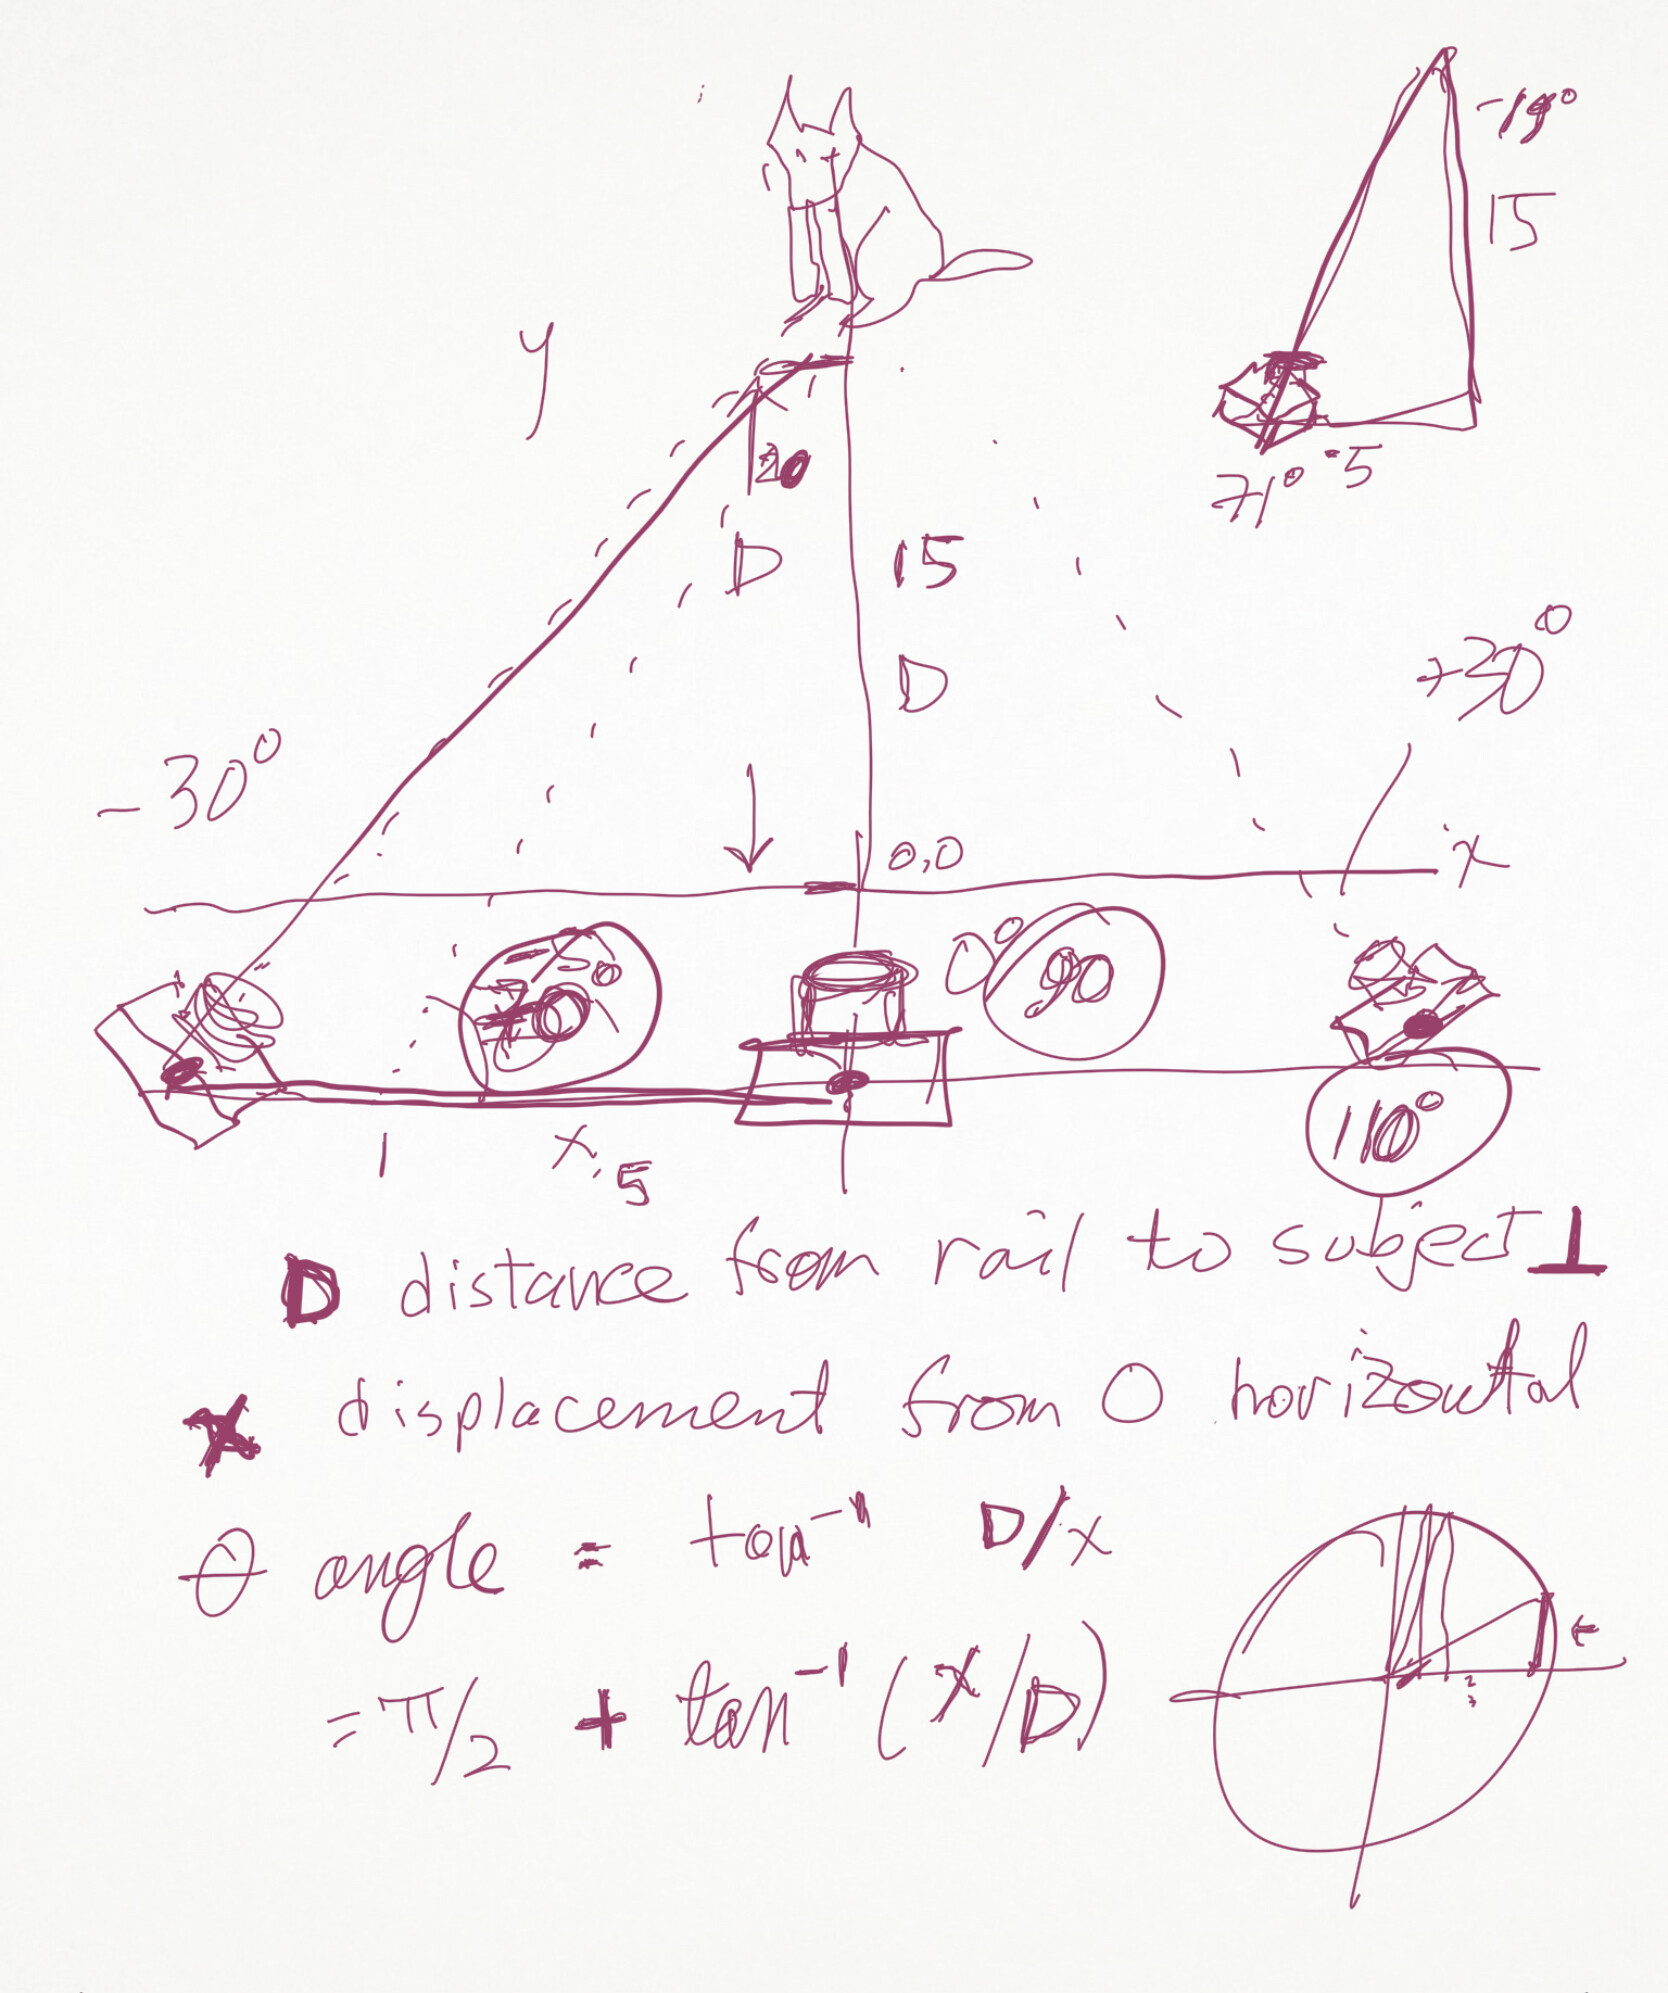 15
y
71° -5
20
D
15
D
+30°
-30°
0,0
x
0°
90
110°
x
5
D distance from rail to subject ⊥
x displacement from 0 horizontal
θ angle = tan⁻¹ D/x
= π/2 + tan⁻¹ (x/D)